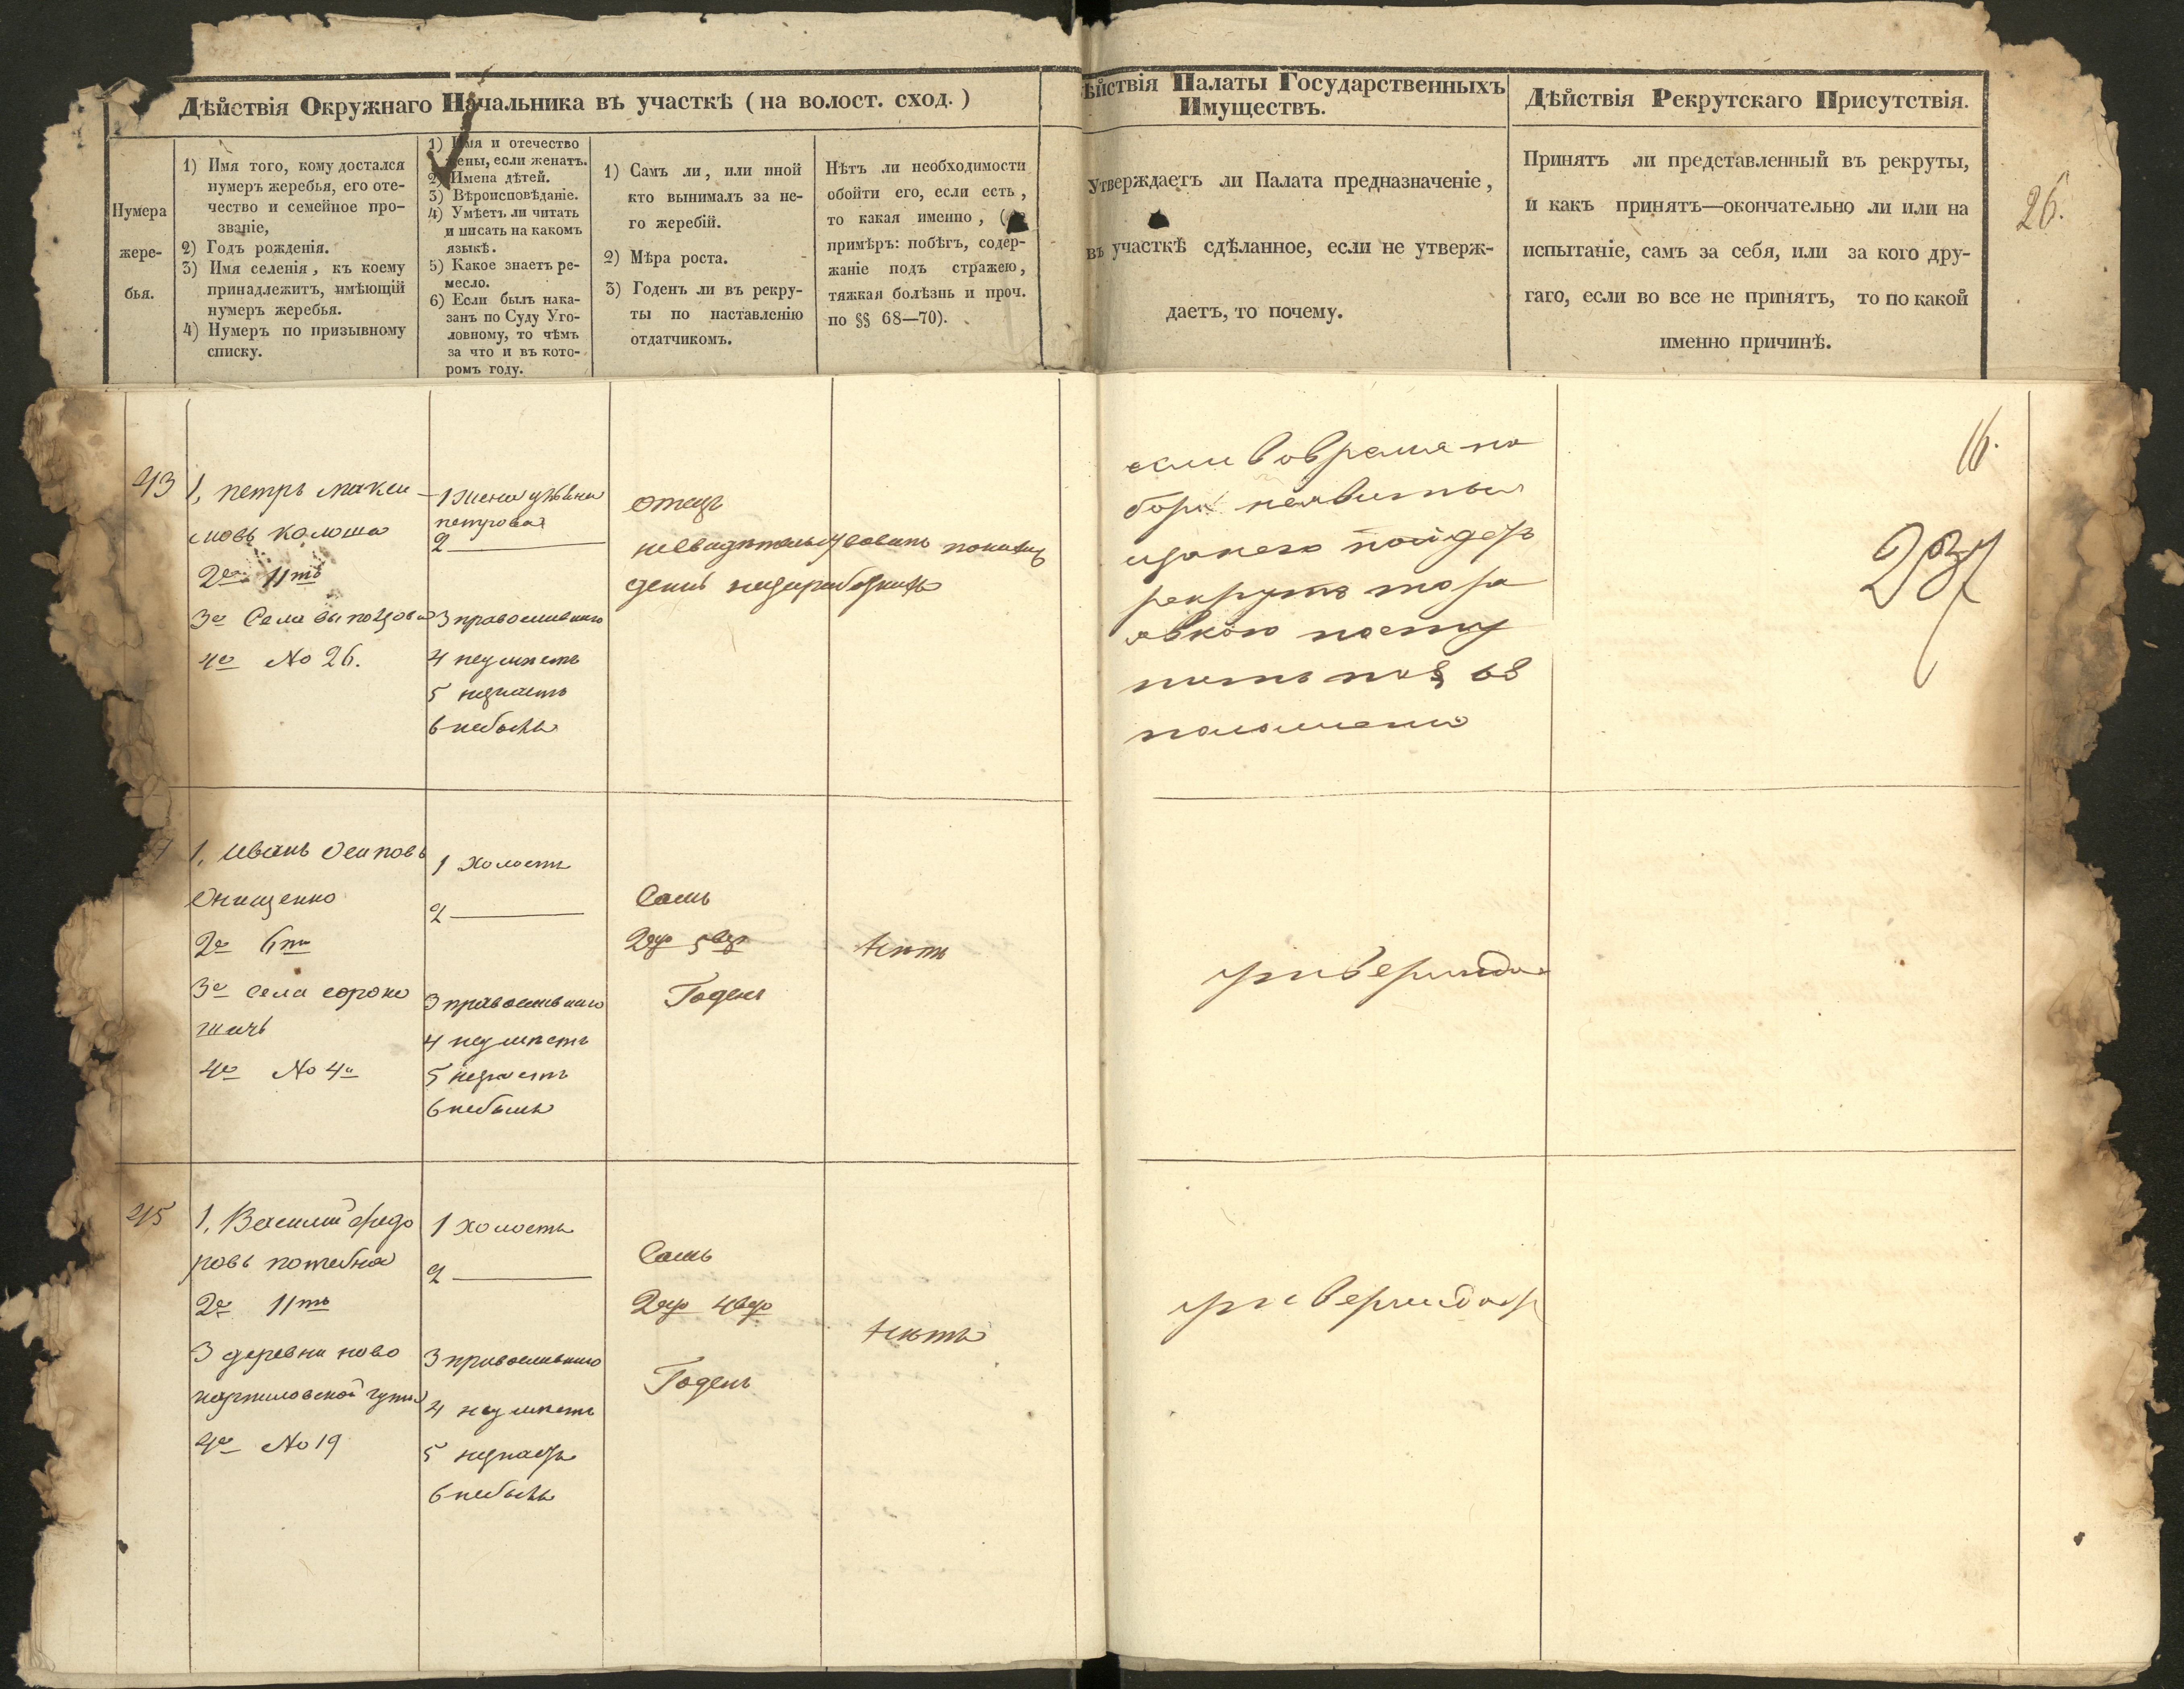 Дѣйствія Окружнаго Начальника въ участкѣ (на волост. сход.)
Нумера
жере-
бья.
1) Имя того, кому достался
нумеръ жеребья, его оте-
чество и семейное про-
званіе,
2) Годъ рожденія.
3) Имя селенія, къ коему
принадлежитъ, имѣющій
нумеръ жеребья.
4) Нумеръ по призывному
списку.
1) Имя и отечество
жены, если женатъ.
2) Имена дѣтей.
3) Вѣроисповѣданіе.
4) Умѣетъ ли читать
и писать на какомъ
языкѣ.
5) Какое знаетъ ре-
месло.
6) Если былъ нака-
занъ по Суду Уго-
ловному, то чѣмъ
за что и въ кото-
ромъ году.
1) Самъ ли, или иной
кто вынималъ за не-
го жеребій.
2) Мѣра роста.
3) Годенъ ли въ рекру-
ты по наставленію
отдатчикомъ.
Нѣтъ ли необходимости
обойти его, если есть,
то какая именно, (
примѣръ: побѣгъ, содер-
жаніе подъ стражею,
тяжкая болѣзнь и проч.
по §§ 68—70).
ѣйствія Палаты Государственныхъ
Имуществъ.
Утверждаетъ ли Палата предназначеніе,
въ участкѣ сдѣланное, если не утверж-
даетъ, то почему.
Дѣйствія Рекрутскаго Присутствія.
Принятъ ли представленный въ рекруты,
и какъ принятъ—окончательно ли или на
испытаніе, самъ за себя, или за кого дру-
гаго, если во все не принятъ, то по какой
именно причинѣ.
26.
43
1, петръ макси
мовъ колоша
2е 11тъ
3е Села
4е No 26.
1 жена
петрова
2
3 православнаго
4 неумѣетъ
5 незнаетъ
6 небылъ
отецъ
если вовремя на
бора неявится
рекрутъ
явкою посту
пить по § 68
положенія
16.
237
1, Иванъ Осиповъ
Онищенко
2е 6ти
3е села сороко
шичь
4е No 4й
1 Холостъ
2
3 православнаго
4 неумѣетъ
5 незнаетъ
6 небылъ
Самъ
2ар 5вер
Годенъ
Нѣтъ
утверждае
45
1, Василий Федо
ровъ потебня
2е 11тъ
3 деревни ново
4е No 19
1 холостъ
2
3 православнаго
4 неумѣетъ
5 незнаетъ
6 небылъ
Самъ
2ар 4вер
Годенъ
Нѣтъ
утверждаетъ